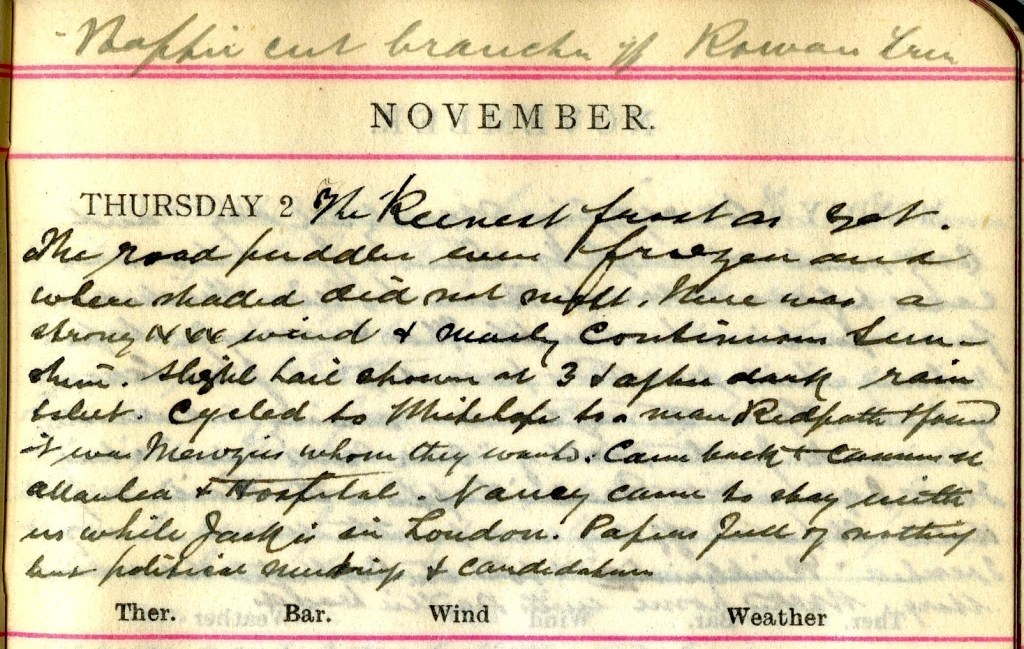 cut branches off Rowan tree
NOVEMBER.
THURSDAY 2 The Keenest frost as yet.
The road puddles were frozen and
where shaded did not melt. There was a
strong wind & nearly Continuous Sun-
shine. Slight hail shower at 3 & after dark rain
& sleet. Cycled to Whitehope to a man Redpath & found
it was Menzies whom they wanted. Came back &
& Hospital. Nancy came to stay with
us while Jack is in London. Papers full of nothing
but political meetings & candidatures
Ther. Bar. Wind Weather